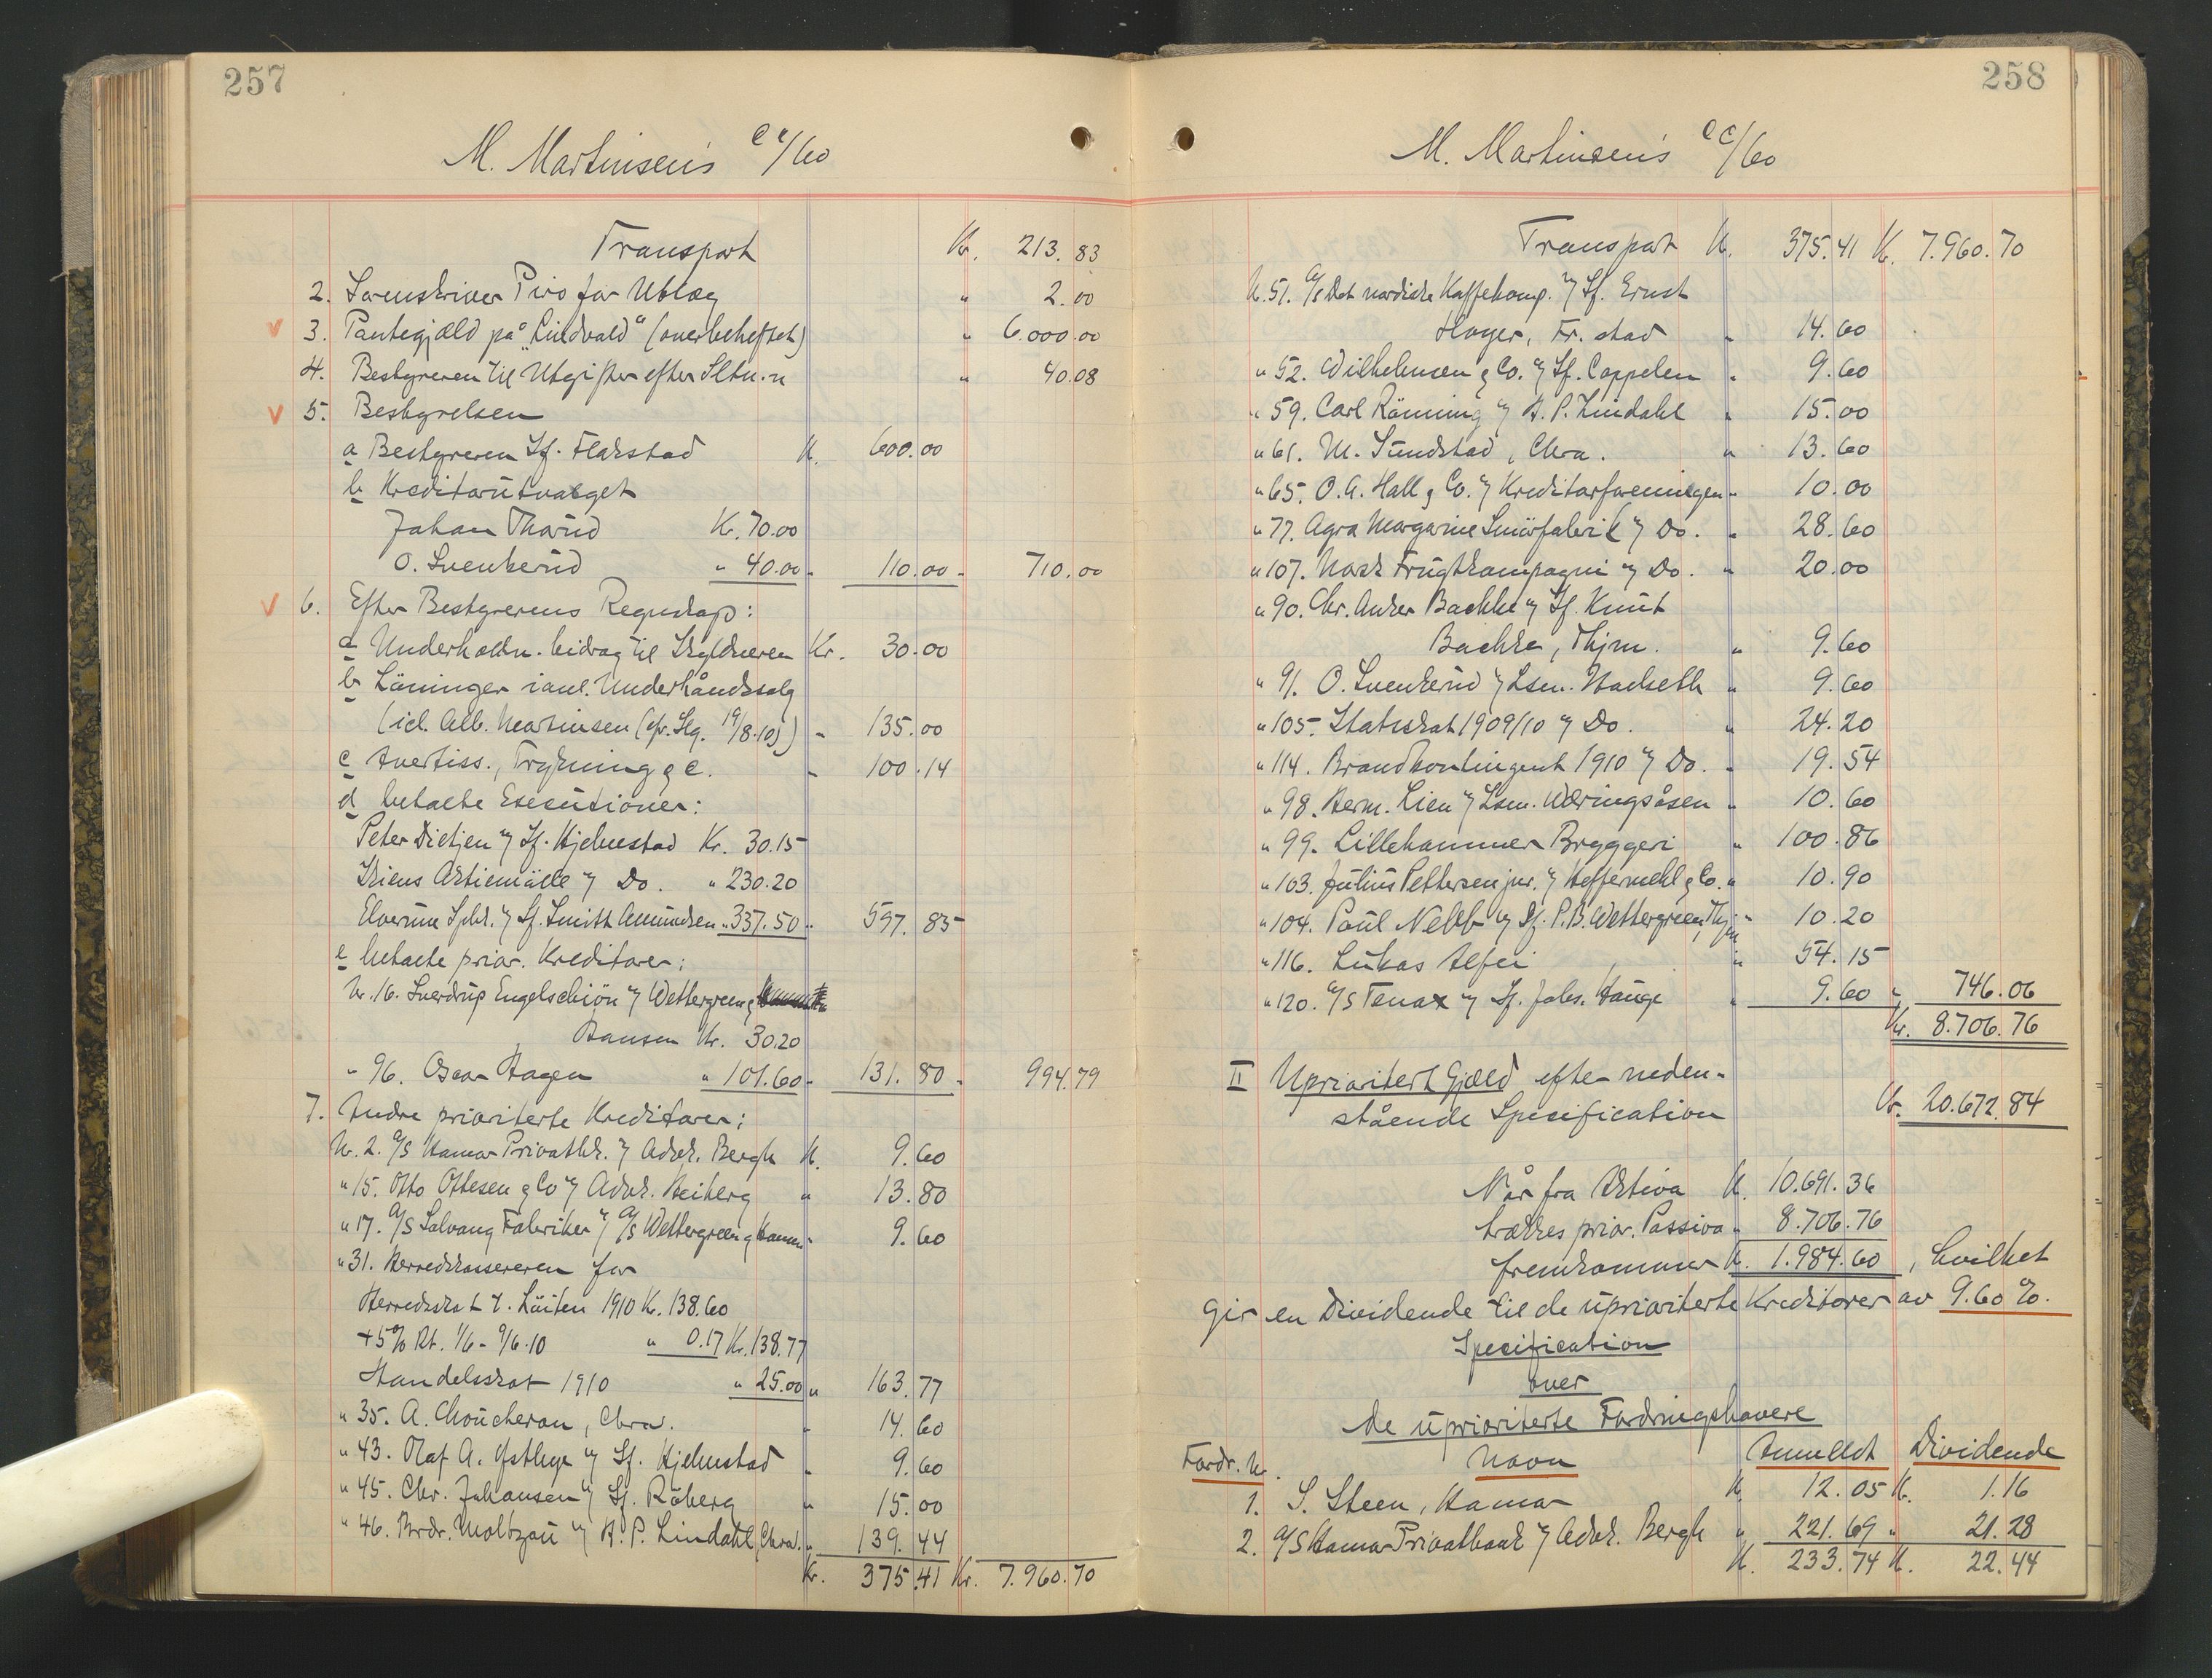 257
M. Martinsen's /60
Transport Kr. 213.83
2. Sorenskriver Piro for Utlæg " 2.00
v 3. Pantegjæld på "Lindvald" (overbeheftet) " 6.000.00
4. Bestyreren til Utgifter efter Sltn. " 40.08
v 5. Bestyrelsen
a Bestyreren Sf. Flakstad K. 600.00
b Kreditorutvalget
Johan Thorud Kr. 70.00
O. Svenkerud " 40.00 " 110.00 " 710.00
v 6. Efter Bestyrerens Regnskap:
a Underholdn. bidrag til Skyldneren Kr. 30.00
b Lönninger i anl. Underhåndssalg
(icl. Alb. Martinsen (cfr. Slg. 19/8.10)) " 135.00
c Avertiss., Trykning & c. " 100.14
d betalte Executioner:
Peter Dietjen v/ Sf. Hjelmestad Kr. 30.15
Skiens Aktiemölle v/ Do. " 230.20
Elverum Spbk. v/ Sf. Smith Amundsen " 337.50 " 597.85
e betalte prior. Kreditorer:
Nr. 16. Sverdrup Engelschiön v/ Wettergreen &
Hansen Kr. 30.20
" 96. Oscar Hagen " 101.60 " 131.80 " 994.79
7. Andre prioriterte Kreditorer:
Nr. 2. A/S Hamar Privatbk. v/ Advk. Bergh K. 9.60
" 15. Otto Ottesen & Co v/ Advk. Heiberg " 13.80
" 17. A/S Salvang Fabriker v/ A/S Wettergreen & Hansen " 9.60
" 31. Herredskassereren for
Herredsskat t. Löiten 1910 K. 138.60
+ 5% Rt. 1/6 - 9/6.10 " 0.17 Kr. 138.77
Handelsskat 1910 " 25.00 " 163.77
" 35. A. Choucheron, Chra. " 14.60
" 43. Olaf A. Østbye v/ Sf. Hjelmestad " 9.60
" 45. Chr. Johansen v/ Sf. Råberg " 15.00
" 46. Brdr. Moltzau v/ H. P. Lindahl, Chra. " 139.44
Kr. 375.41 Kr. 7.960.70
258
M. Martinsen's /60
Transport K. 375.41 K. 7.960.70
N. 51. A/S Det nordiske Kaffekomp. v/ Sf. Ernst
Hoyer, Fr.stad " 14.60
" 52. Wilhelmsen & Co. v/ Sf. Cappelen " 9.60
" 59. Carl Rönning v/ H. P. Lindahl " 15.00
" 61. M. Sundstad, Chra. " 13.60
" 65. O. A. Hall & Co. v/ Kreditorforeningen " 10.00
" 77. Agra Margarine Smörfabrik v/ Do. " 28.60
" 107. Norsk Frugtkompagni v/ Do. " 20.00
" 90. Chr. Anker Bachke v/ Sf. Knut
Bachke, Thjm. " 9.60
" 91. O. Svenkerud v/ Lsm. " 9.60
" 105. Statsskat 1909/10 v/ Do. " 24.20
" 114. Brandkontingent 1910 v/ Do. " 19.54
" 98. Herm. Lien v/ Lsm. Væringsåsen " 10.60
" 99. Lillehammer Bryggeri " 100.86
" 103. Julius Pettersen jnr. v/ Heffermehl & Co. " 10.90
" 104. Paul Nebb v/ Sf. P. B. Wettergreen, Thjm " 10.20
" 116. Lukas Alfei " 54.15
" 120. A/S Tenax v/ Sf. Johs. Hauge " 9.60 " 746.06
Kr. 8.706.76
II Uprioritert Gjæld efter neden-
stående Specification Kr. 20.672.84
Når fra Aktiva K. 10.691.36
trækkes prior. Passiva " 8.706.76
fremkommer K. 1.984.60, hvilket
gir en Dividende til de uprioriterte Kreditorer av 9.60%.
Specification
over
de uprioriterte Fordringshavere
Fordr. Nr. Navn Anmeldt Dividende
1. S. Steen, Hamar K. 12.05 K. 1.16
2. A/S Hamar Privatbank v/ Advk. Bergh " 221.69 " 21.28
K. 233.74 K. 22.44